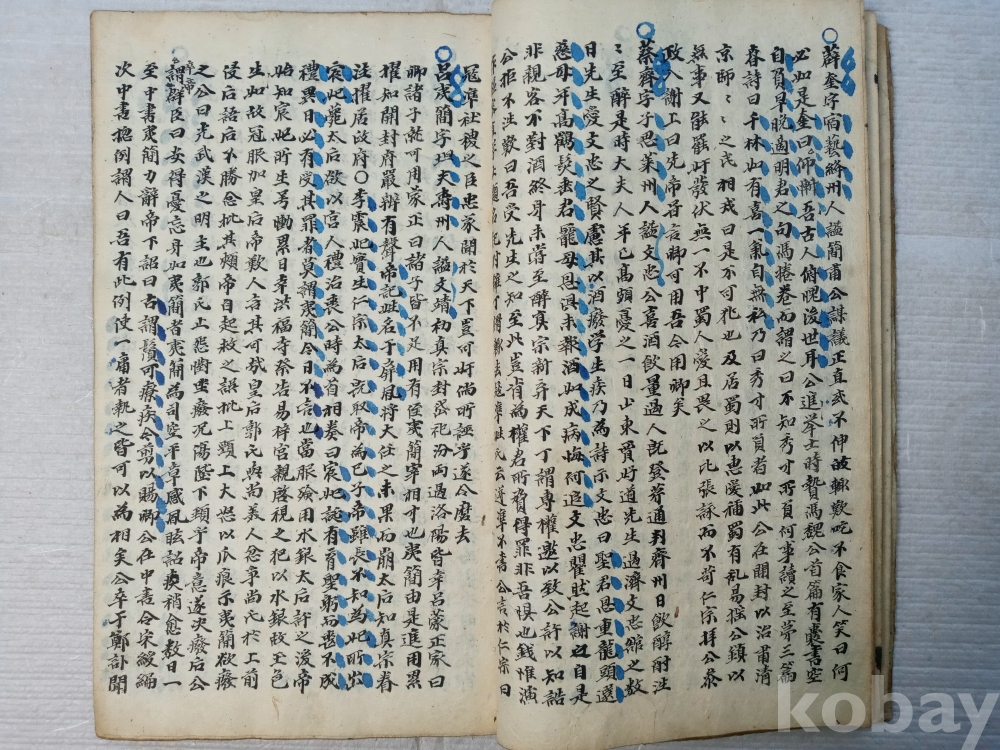 ○薛奎字宿藝絳州人謚簡肅公謀議正直或不伸歸輒歎吃不食家人笑曰何
必如是奎曰仰慚吾古人俯愧後世耳公進擧士時贄馮魏公首篇有囊書空
自負早晚遇明君之句馮捲卷而謂之曰不知秀才所負何事續之至第三篇
春詩曰千林如有喜一氣自無私乃曰秀才所負者如此公在開封以治肅清
京師〻之民相戒曰是不可犯也及居蜀則以惠愛稱蜀有乱易搖公鎮以
無事又能奸發伏無一不中蜀人愛且畏之以比張詠而不苛仁宗拜公參
政入謝上曰先帝嘗言卿可用吾今用卿矣
蔡齊字子思萊州人謚文忠公喜酒飲量過人旣登第通判齊州日飲醇酎往
〻至醉是時大夫人年已高頗憂之一日山東賈好道先生過濟文忠館之數
日先生愛文忠之賢慮其以酒廢學生疾乃為詩示文忠曰聖君恩重龍頭選
慈母年高鶴髮垂君寵母恩俱未報酒如成病悔何追文忠瞿然起謝之自是
非親客不對酒終身未嘗至醉真宗新弃天下丁謂專權邀以致公許以知誥
公拒不往歎曰吾受先生之知至此豈肯為權君所脅得罪非吾惧也錢惟演
公言於仁宗曰
寇準社稷之臣忠聞於天下豈可奸所誣乎遂令磨去
○呂夷簡字坦夫壽州人謚文靖初真宗封岱祀汾兩過洛陽皆幸呂蒙正家曰
卿諸子孰可用蒙正曰諸子皆不足用有侄夷簡宰相才也夷簡由是進用累
擢知開封府嚴辦有聲帝記姓名于屛風將大任之未果而崩太后知真宗眷
注擢居政府○李宸妃實生仁宗太后旣取帝為己子帝雖長不知為妃所出
宸妃薨太后欲以宮人禮治喪公時為首相奏曰宸妃誕有育聖躬而喪不成
禮異日必有受其罪者莫謂夷簡今日不言也當服殮用水銀太后許之後帝
始知宸妃所生号慟累日幸洪福寺祭告易梓宮親啓視之妃以水銀故玉色
生如故冠服加皇后帝歎人言其可哉皇后郭氏與尚美人忿爭尚氏於上前
侵后語后不勝忿批其頰帝自起救之誤批上頸上大怒以爪痕示夷簡欲廢
之公曰光武漢之明主也郭氏止怨懟坐廢况傷陛下頸乎帝意遂決廢后公
卒帝
謂群臣曰安得憂忘身如夷簡者夷簡為司空平章感風眩詔疾稍愈數日一
至中書夷簡力辭帝下詔曰古謂鬚可療疾今剪以賜卿公在中書令宋綬編
次中書摠例謂人曰吾有此例使一庸者執之皆可以為相矣公卒于鄭訃聞
kobay